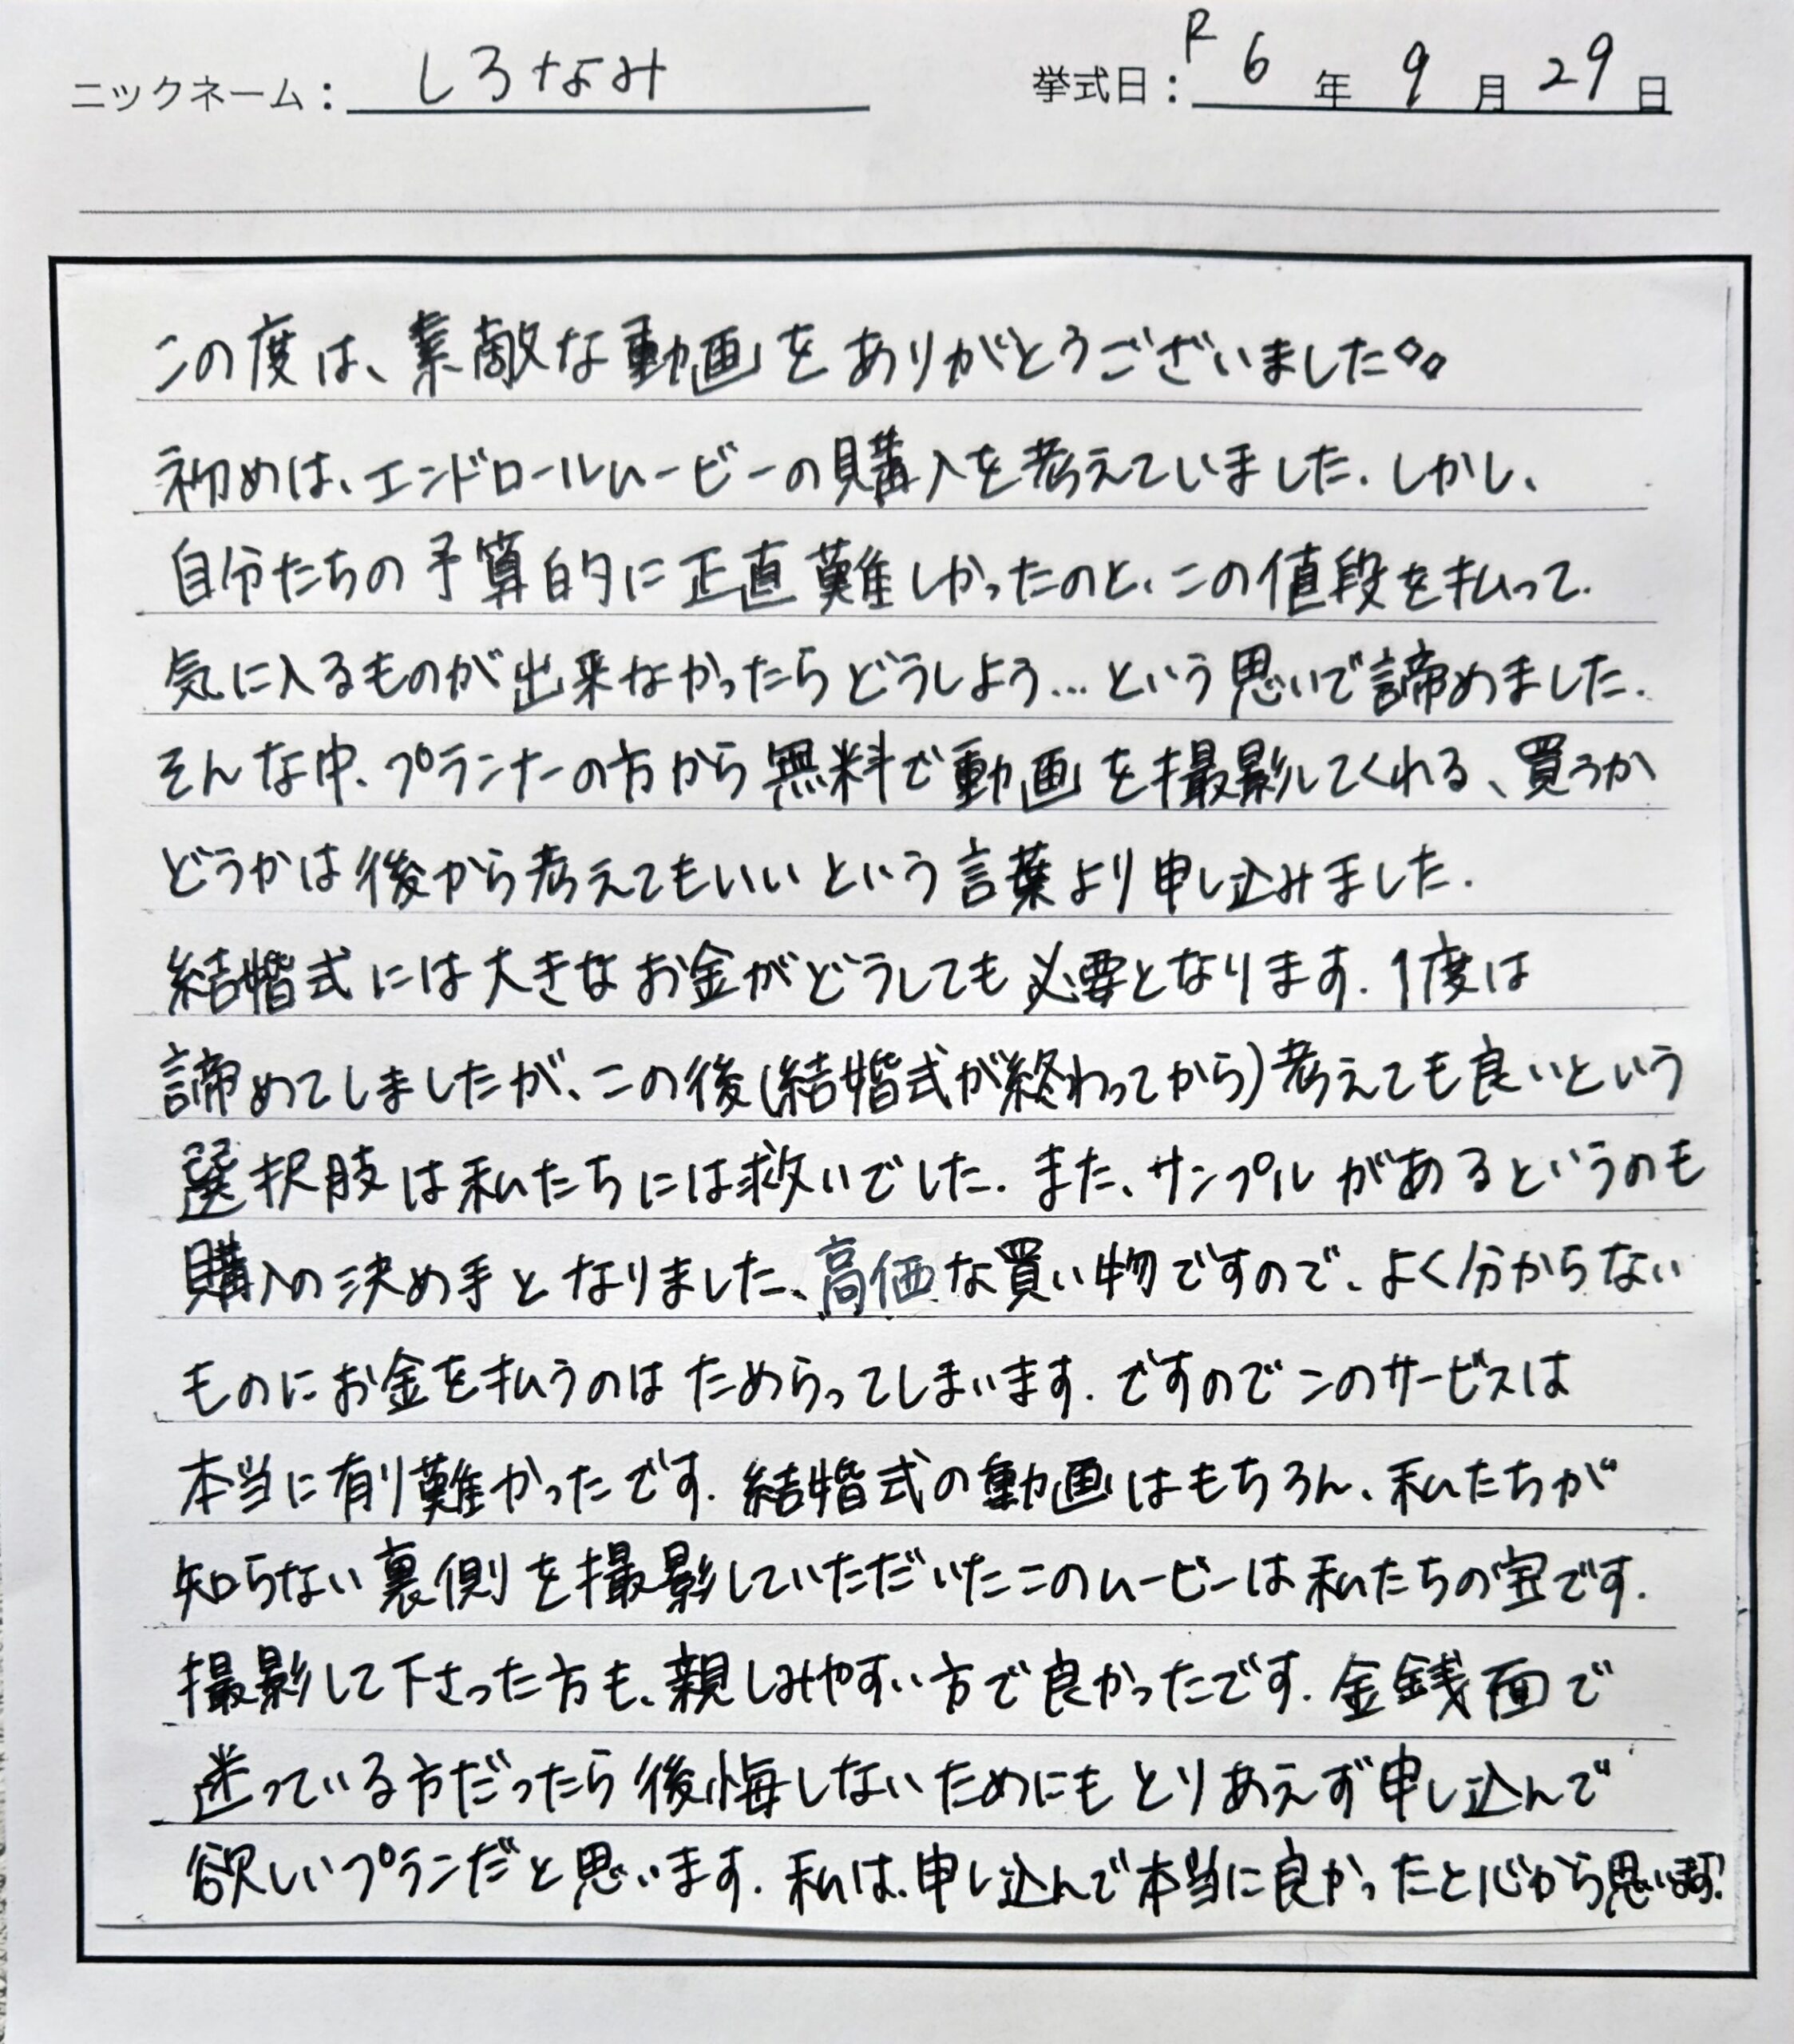 ニックネーム：しろなみ 挙式日：R6年9月29日
この度は、素敵な動画をありがとうございました。。
初めは、エンドロールムービーの購入を考えていました。しかし、
自分たちの予算的に正直難しかったのと、この値段を払って、
気に入るものが出来なかったらどうしよう…という思いで諦めました。
そんな中、プランナーの方から無料で動画を撮影してくれる、買うか
どうかは後から考えてもいいという言葉より申し込みました。
結婚式には大きなお金がどうしても必要となります。1度は
諦めてしましたが、この後(結婚式が終わってから)考えても良いという
選択肢は私たちには救いでした。また、サンプルがあるというのも
購入の決め手となりました、高価な買い物ですので、よく分からない
ものにお金を払うのはためらってしまいます。ですのでこのサービスは
本当に有り難かったです。結婚式の動画はもちろん、私たちが
知らない裏側を撮影していただいたこのムービーは私たちの宝です。
撮影して下さった方も、親しみやすい方で良かったです。金銭面で
迷っている方だったら後悔しないためにもとりあえず申し込んで
欲しいプランだと思います。私は、申し込んで本当に良かったと心から思います!